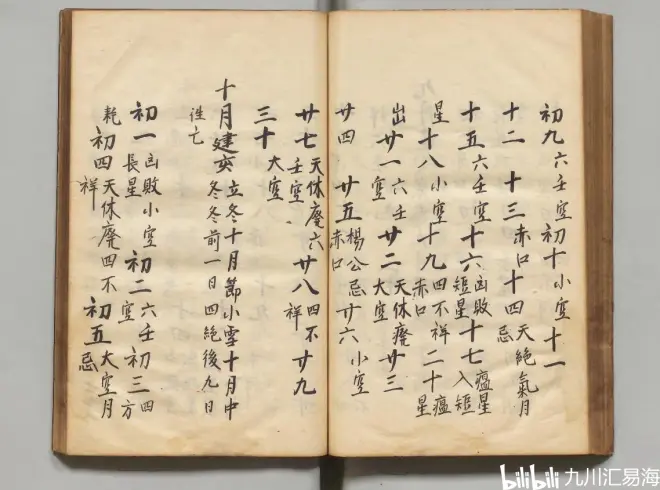 初九六壬空初十小空十一
十二 十三赤口十四天絕氣月忌
十五六壬空十六凶敗短星十七瘟星入短
星十八小空十九四不祥赤口二十瘟星
出廿一六壬空廿二天休廢大空廿三
廿四 廿五楊公忌赤口廿六小空
廿七天休廢六壬空廿八四不祥廿九
三十大空
十月建亥立冬十月節小雪十月中冬冬前一日四絕後九日
往亡
初一凶敗小空長星初二六壬空初三四方
耗初四天休廢四不祥初五大空月忌
bilibili 九川汇易海